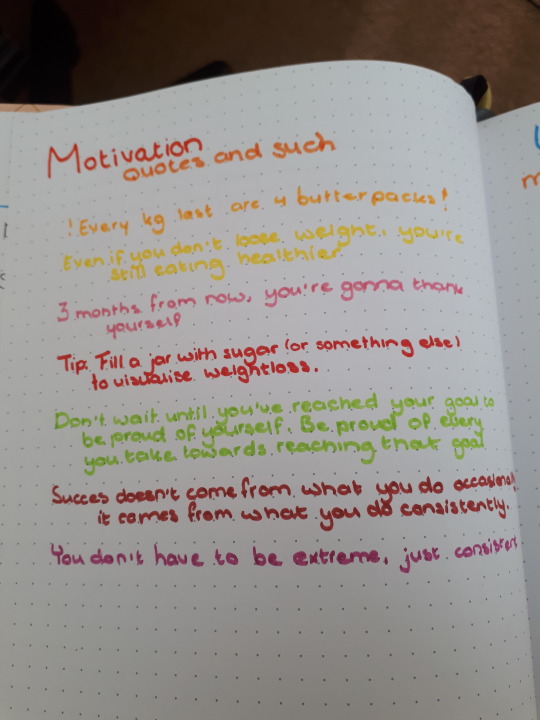 Motivation
quotes and such
! Every kg last are 4 butterpacks !
Even if you don't loose weight, you're
still eating healthier
3 months from now, you're gonna thank
yourself
Tip: Fill a jar with sugar (or something else)
to visualise weightloss.
Don't wait until you've reached your goal to
be proud of yourself. Be proud of every
you take towards reaching that goal
Succes doesn't come from what you do occasional
it comes from what you do consistently.
You don't have to be extreme, just consistent